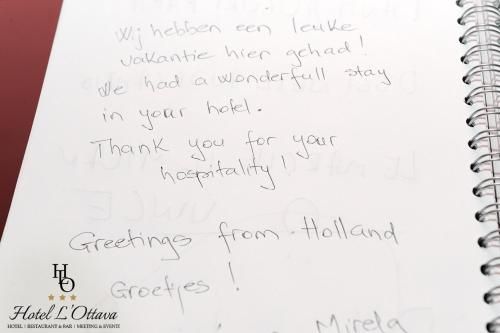 Wij hebben een leuke
vakantie hier gehad!
We had a wonderfull stay
in your hotel.
Thank you for your
hospitality!
Greetings from Holland
Groetjes!
Mirela
HLO
Hotel L'Ottava
HOTEL | RESTAURANT & BAR | MEETING & EVENTS